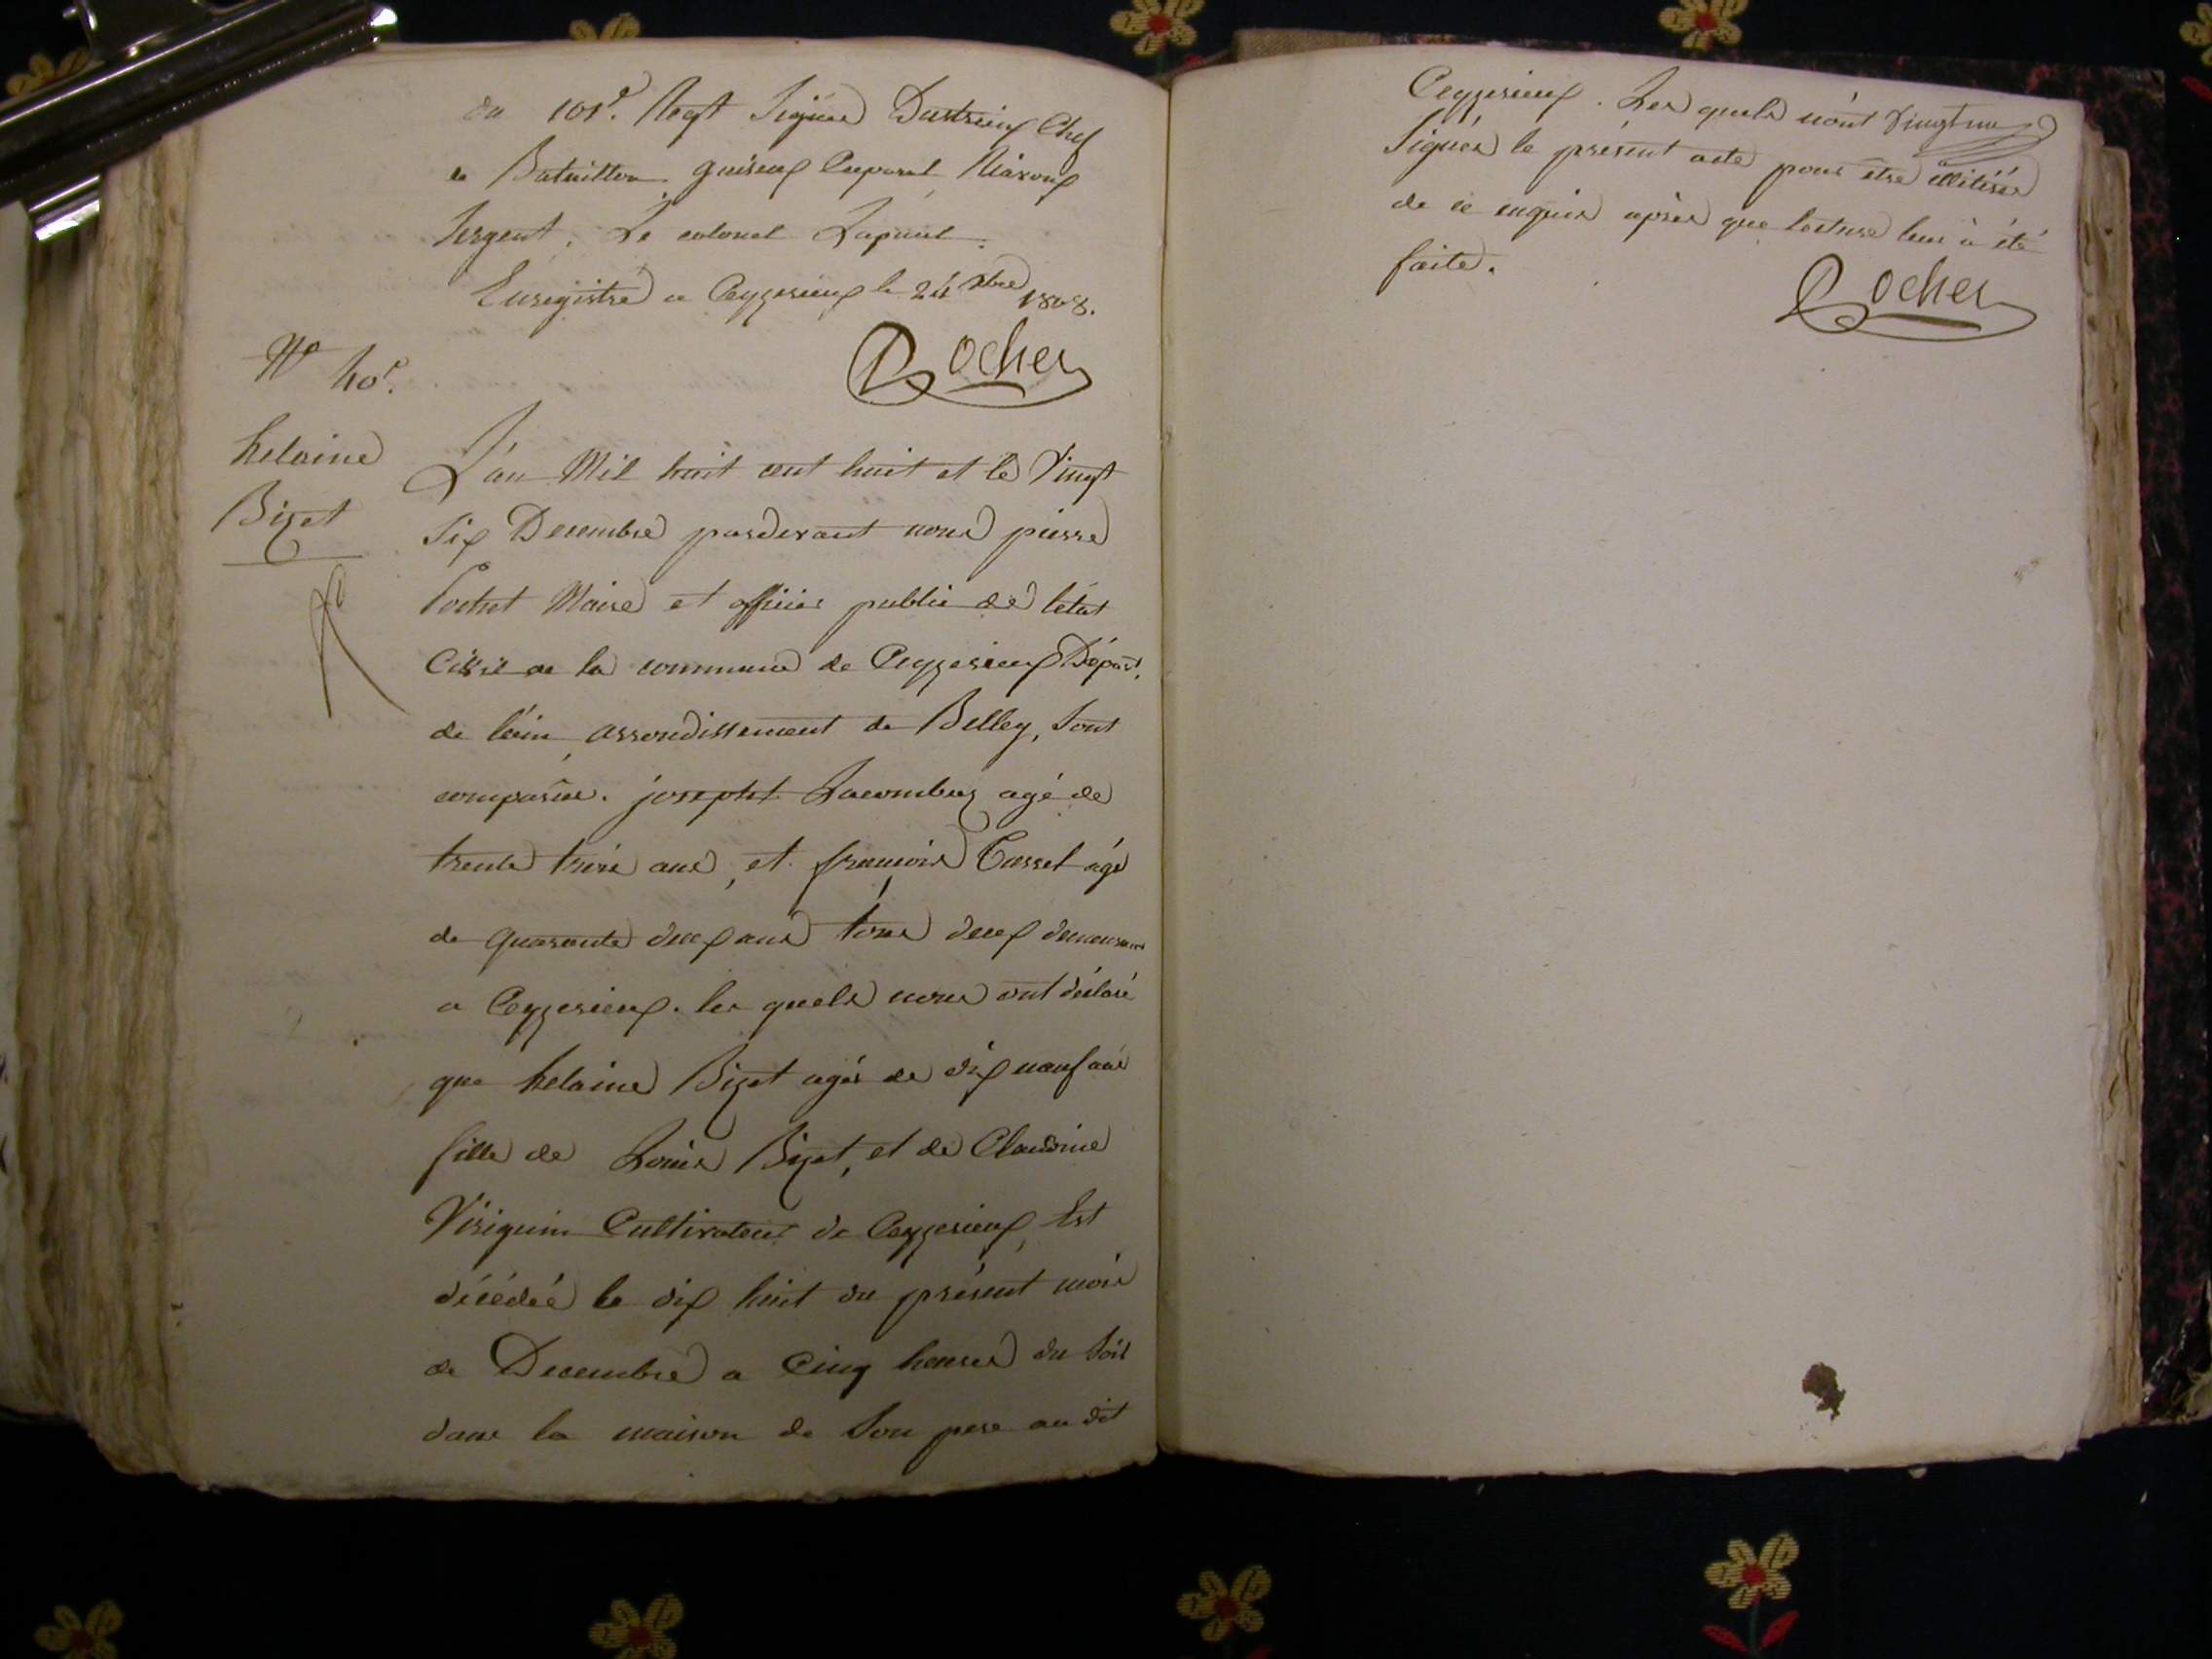 du 101e. Regt Signés Dustrieux Chef
de Bataillon, Caporal
Sergent. Le colonel
Enregistré a Ceyzerieux le 24 Xbre 1808.
Rochet
No 40e.
helaine
Bizet
L'an Mil huit cent huit et le Vingt
Six Decembre pardevant nous pierre
Rochet Maire et officier public de létat
Civil de la commune de Ceyzerieux Départ.
de léin, arrondissement de Belley, Sont
comparus. josepht Lacombez agé de
trente trois ans, et françois Cusset agé
de quarante deux ans tous deux demeurant
a Ceyzerieux. les quels nous ont déclaré
que helaine Bizet agée de dix neuf ans
fille de Louis Bizet, et de Claudine
Viriguin Cultivateur de Ceyzerieux, Est
décédée le dix huit du présent mois
de Decembre a Cinq heures du Soir
dans la maison de Son pere au dit
Ceyzerieux. Les quels n'ont
Signés le présent acte pour être illitérés
de ce enquis après que lecture leur à été
faite.
Rochet